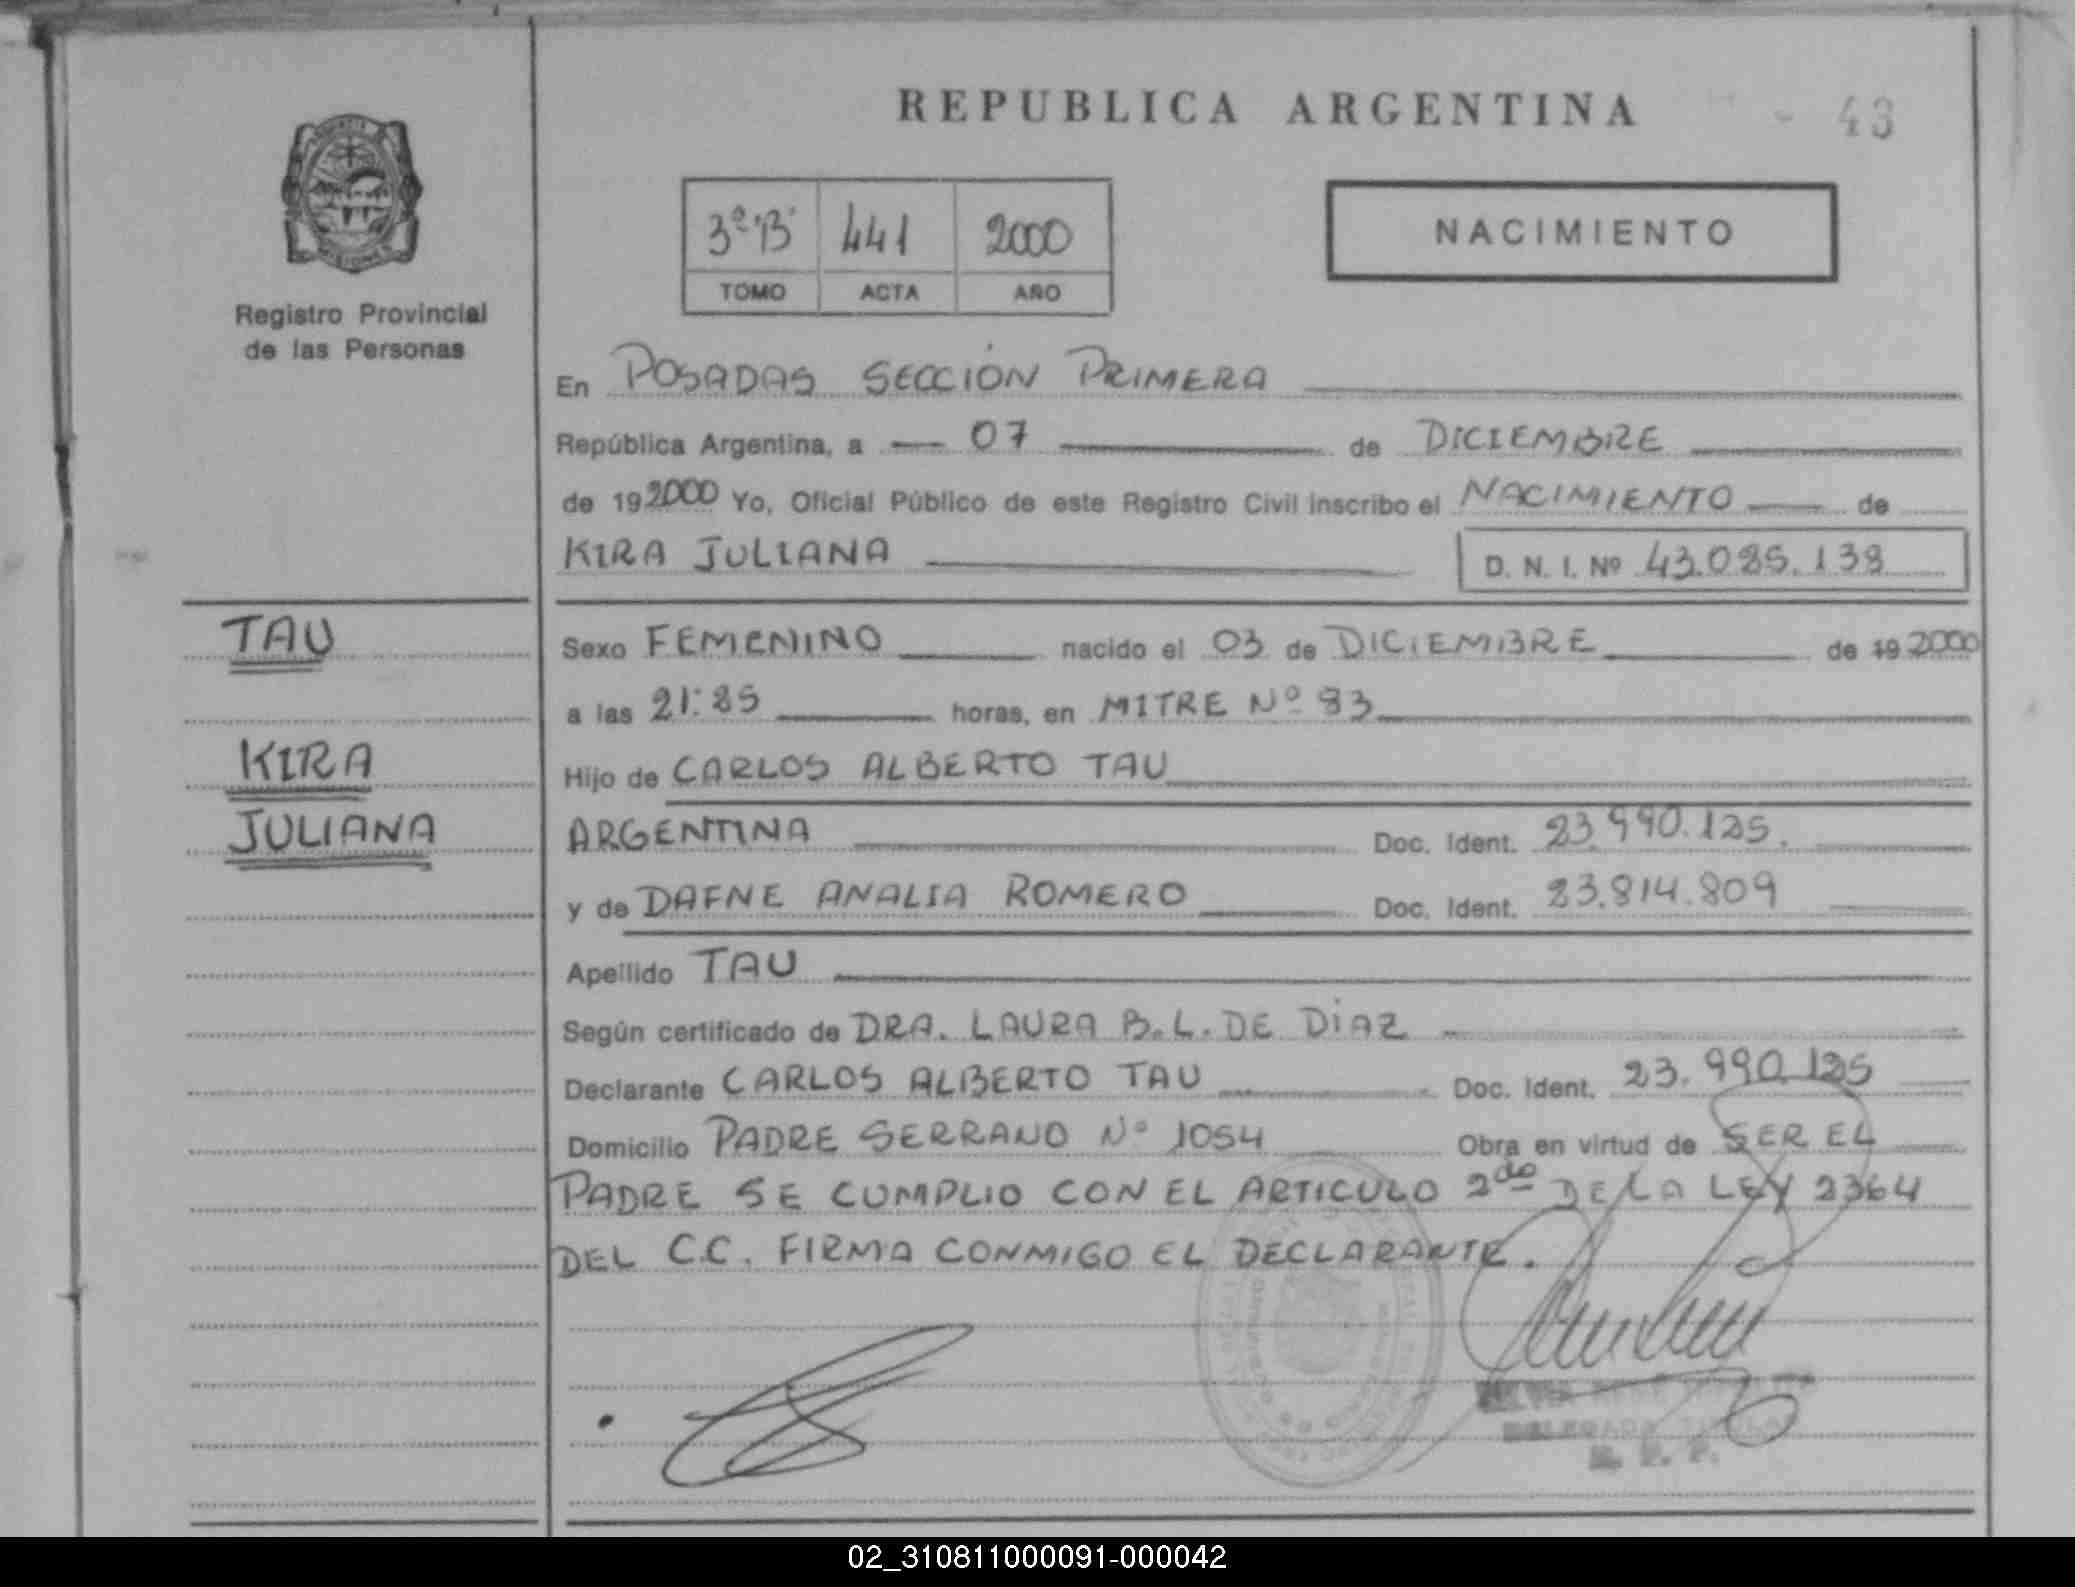 REPUBLICA ARGENTINA
43
Registro Provincial
de las Personas
3º "B" 441 2000
TOMO ACTA AÑO
NACIMIENTO
En POSADAS SECCIÓN PRIMERA
República Argentina, a 07 de DICIEMBRE
de 19 2000 Yo, Oficial Público de este Registro Civil inscribo el NACIMIENTO de
KIRA JULIANA D. N. I. Nº
TAU
KIRA
JULIANA
Sexo FEMENINO nacido el 03 de DICIEMBRE de 19 2000
a las horas, en MITRE Nº
Hijo de CARLOS ALBERTO TAU
ARGENTINA Doc. Ident. 23.990.125.
y de DAFNE ANALIA ROMERO Doc. Ident. 23.814.809
Apellido TAU
Según certificado de DRA. LAURA B.L. DE DÍAZ
Declarante CARLOS ALBERTO TAU Doc. Ident. 23.990.125
Domicilio PADRE SERRANO Nº 1054 Obra en virtud de SER EL
PADRE SE CUMPLIO CON EL ARTICULO 2do DE LA LEY 2364
DEL C.C. FIRMA CONMIGO EL DECLARANTE.
02_310811000091-000042